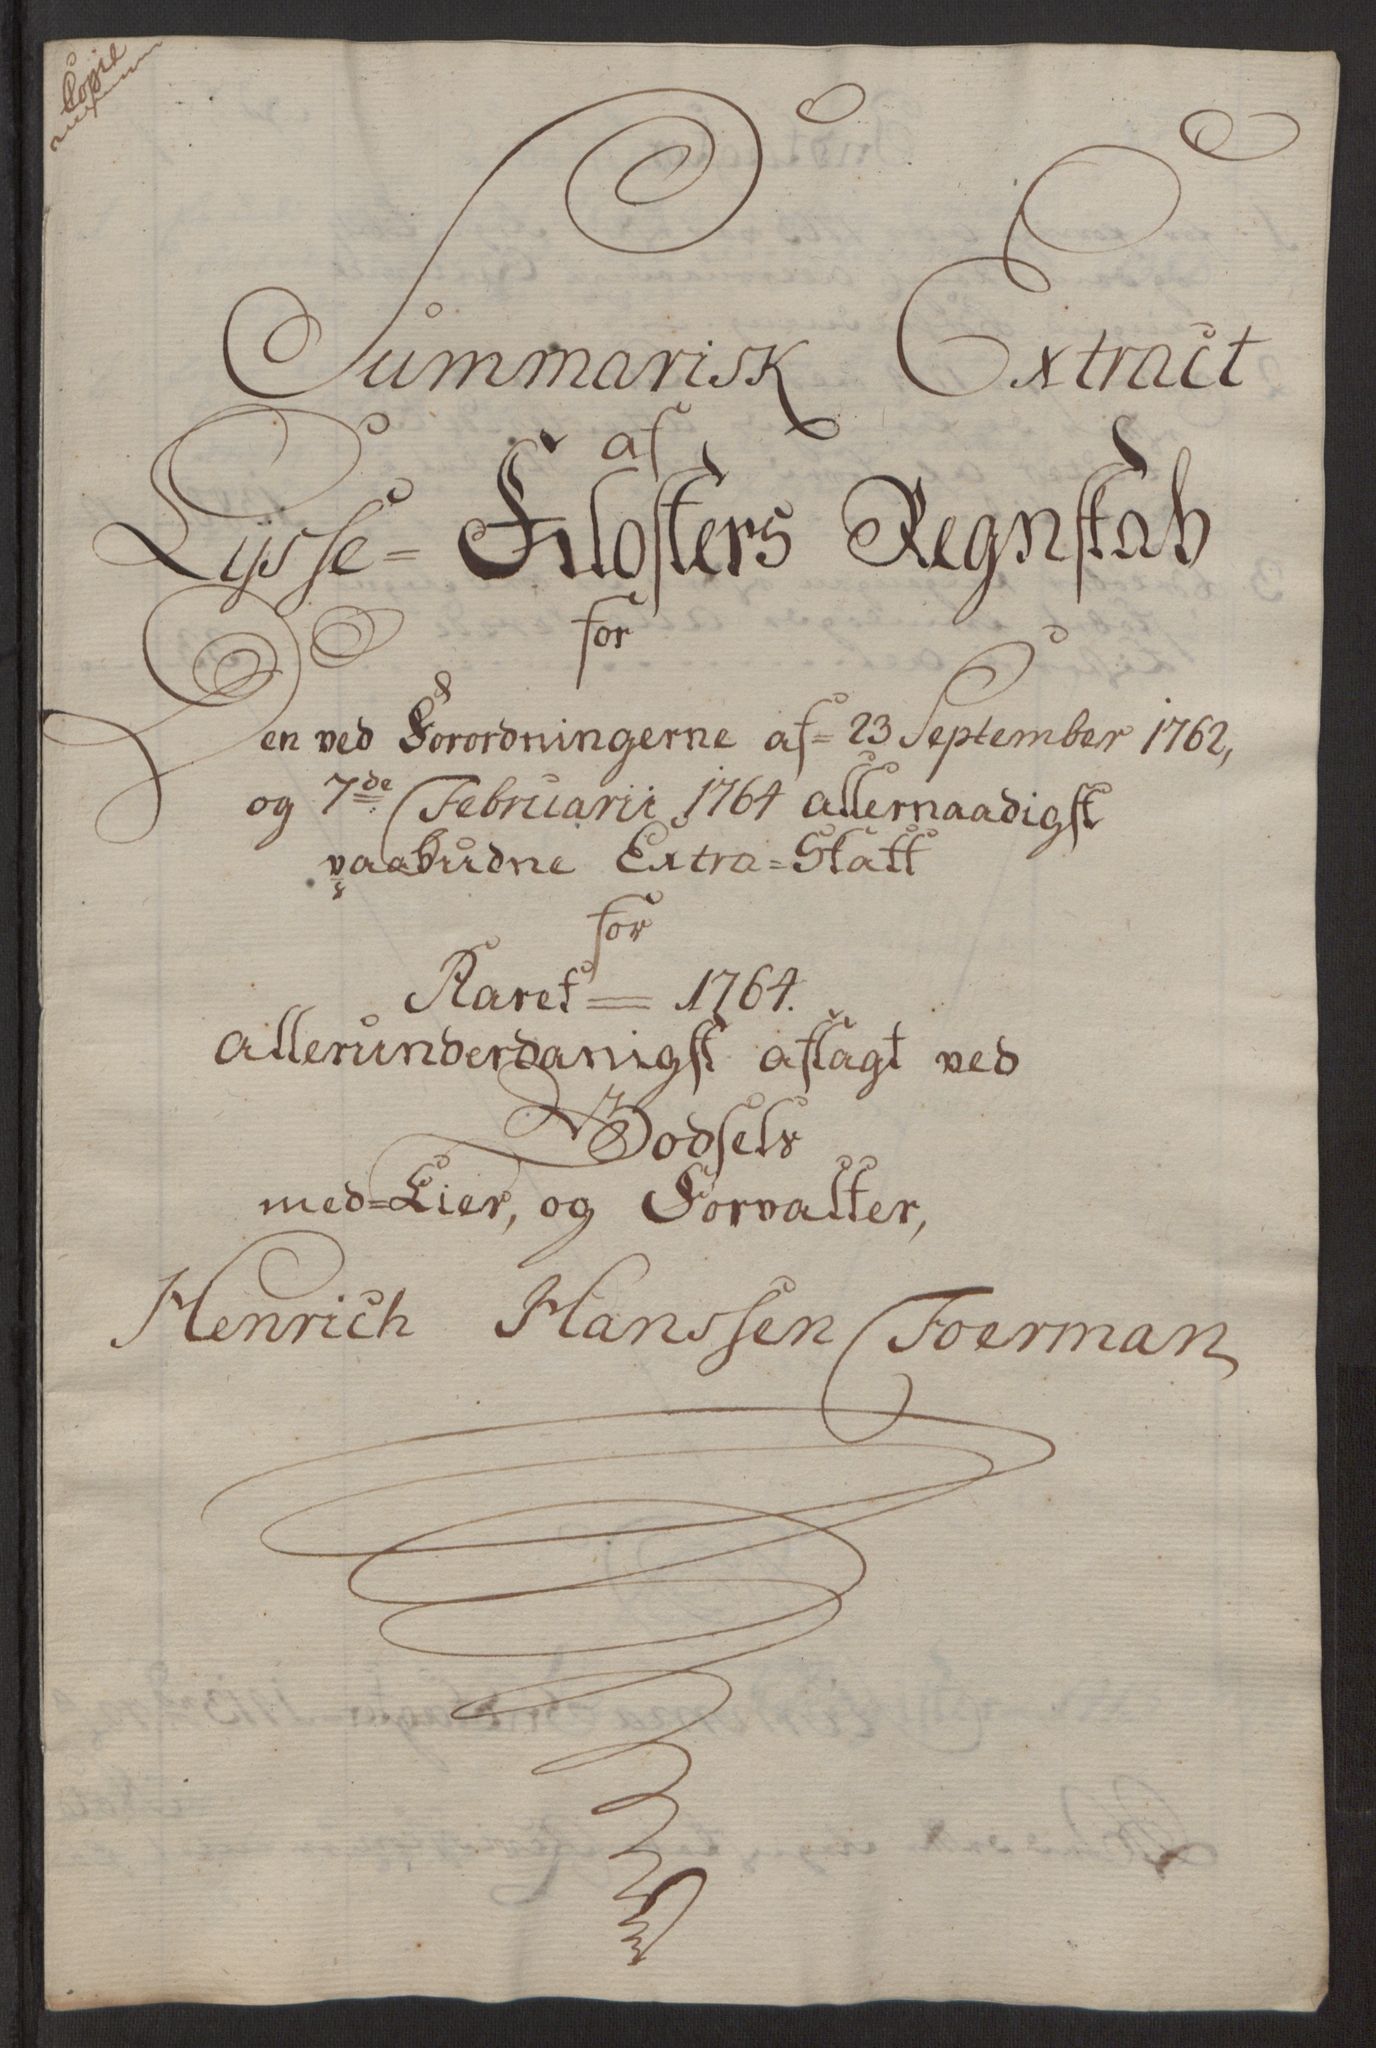 Copie
Summarisk Extract
af
Lysse-Klosters Regnskab
for
Den ved Forordningerne af 23 September 1762,
og 7de Februarii 1764 allernaadigst
paabudne Extra-Skatt
for
Aaret 1764.
allerunderdanigst aflagt ved
Godsets
med-Eier, og Forvalter,
Henrich Hanssen Foerman